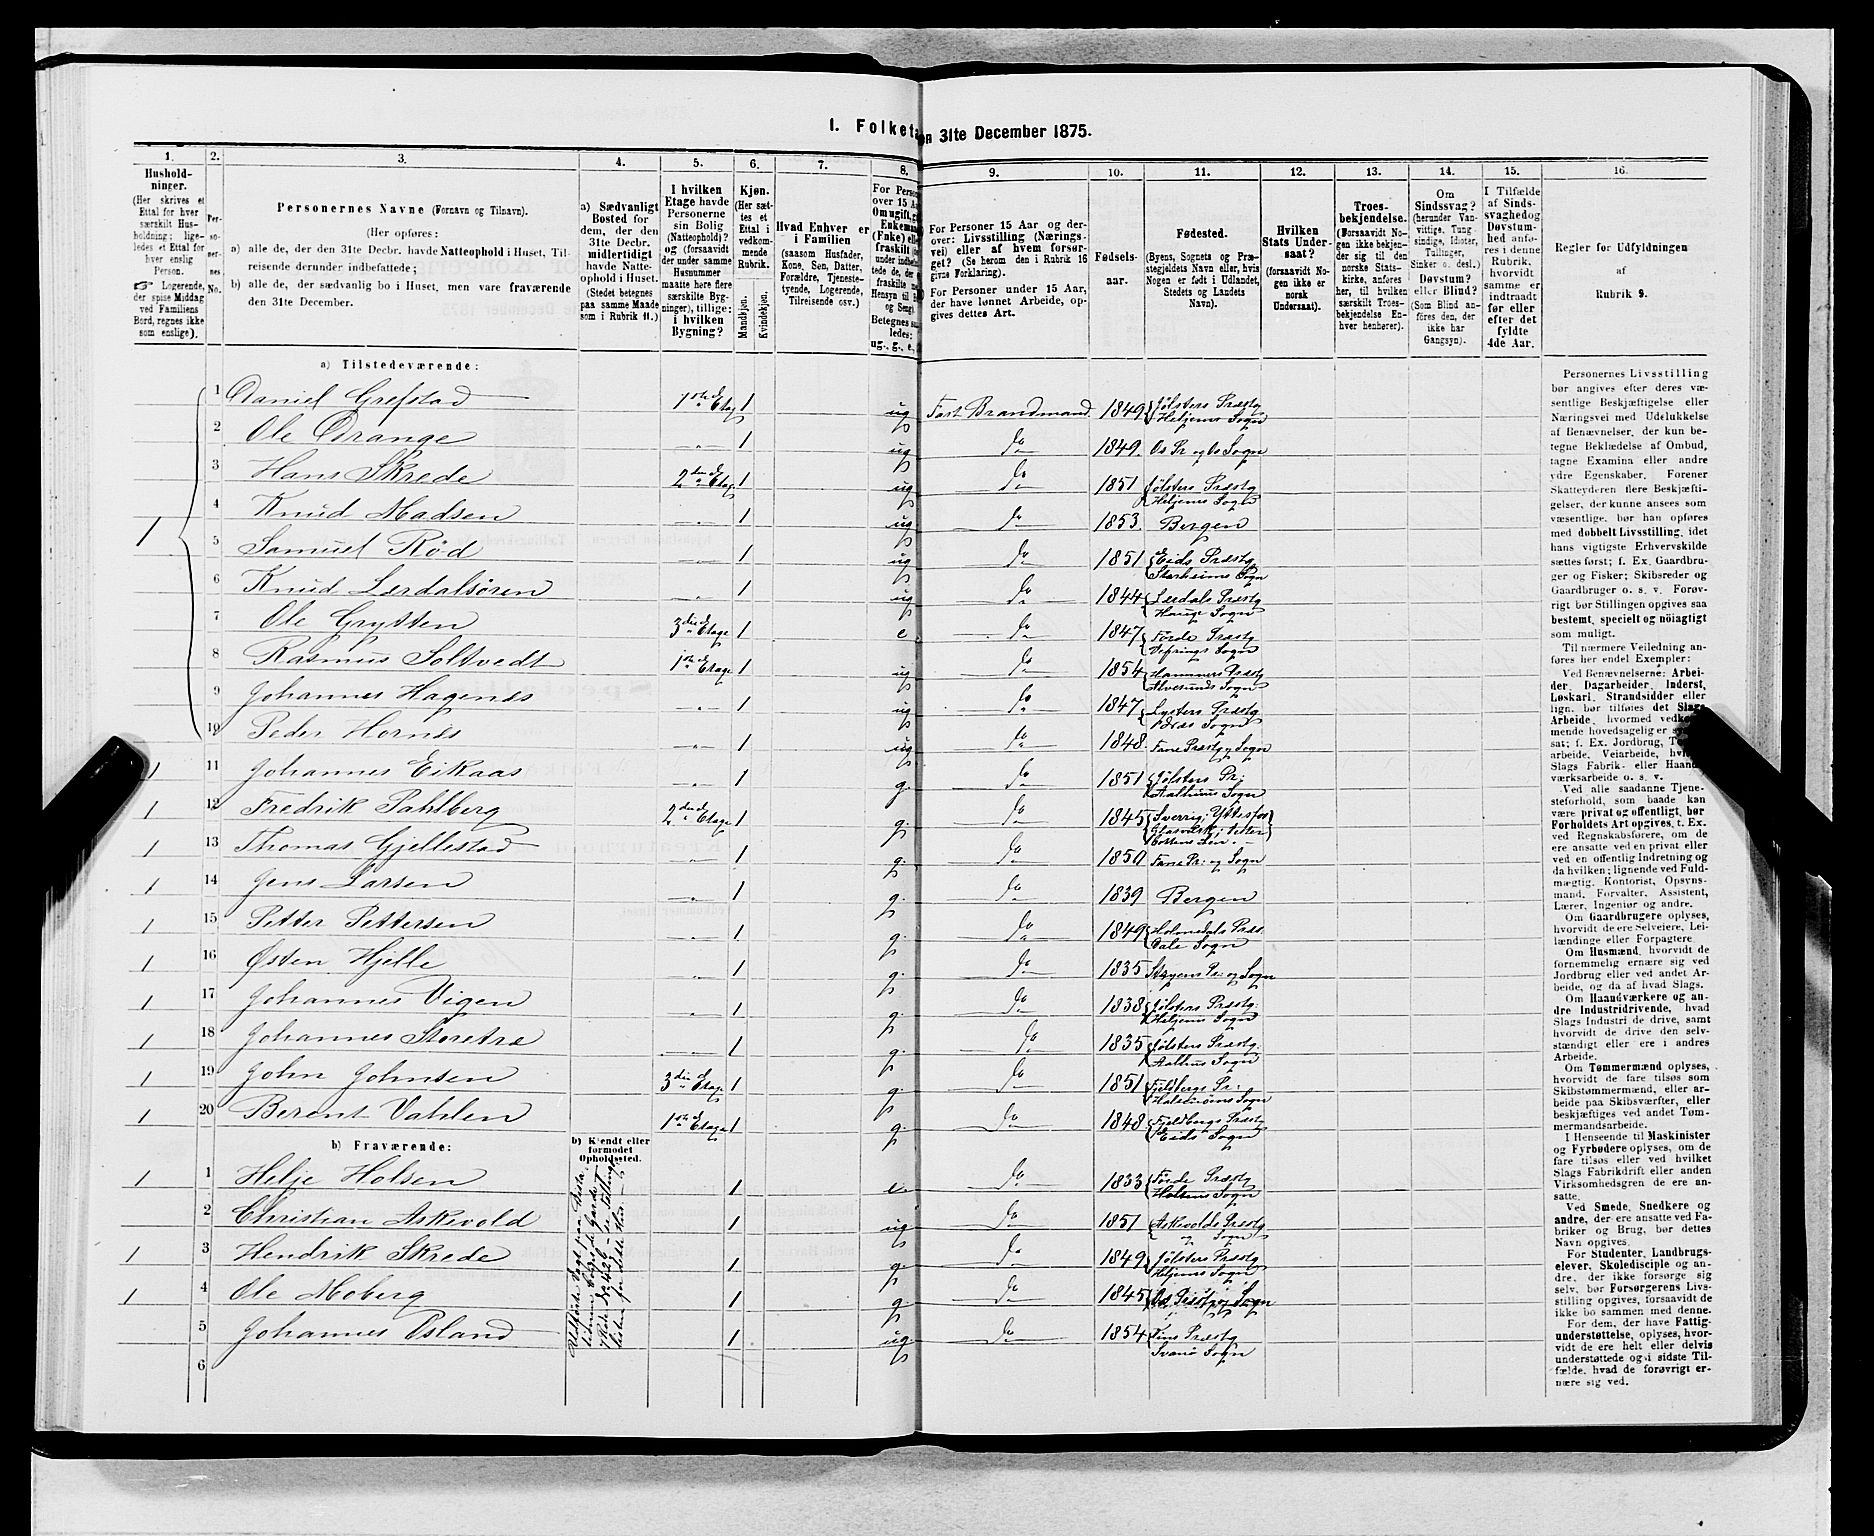 1. Folketæ
on 31te December 1875.
1. 2. 3. 4. 5. 6. 7. 8. 9. 10. 11. 12. 13. 14. 15. 16.
Hushold-
ninger.
(Her skrives et
Ettal for hver
særskilt Hus-
holdning; lige-
ledes et Ettal for
hver enslig
Person.
☞ Logerende,
der spise Middag
ved Familiens
Bord, regnes ikke
som enslige).
Per-
so-
ner-
nes
No.
Personernes Navne (Fornavn og Tilnavn).
(Her opføres:
a) alle de, der den 31te Decbr. havde Natteophold i Huset, Til-
reisende derunder indbefattede;
b) alle de, der sædvanlig bo i Huset, men vare fraværende
den 31te December.
a) Sædvanligt
Bosted for
dem, der den
31te Decbr.
midlertidigt
havde Natte-
ophold i Huset.
(Stedet betegnes
paa samme Maade
som i Rubrik 11.)
I hvilken
Etage havde
Personerne
sin Bolig
(Natteophold)?
og (forsaavidt
der under samme
Husnummer
maatte høre flere
særskilte Byg-
ninger), tillige:
i hvilken
Bygning?
Kjøn.
(Her sæt-
tes et
Ettal i
vedkom-
mende
Rubrik.
Mandkjøn.
Kvindekjøn.
Hvad Enhver er
i Familien
(saasom Husfader,
Kone, Søn, Datter,
Forældre, Tjeneste-
tyende, Logerende,
Tilreisende osv.)
For Person
over 15 Aa
Om ugift, g
Enkeman
(Enke) elle
fraskilt
under indbe
tede de, der
fraskilte
Hensyn til
og Seng)
Betegnes saa
ledes:
ug., g., e.,
For Personer 15 Aar og der-
over: Livsstilling (Nærings-
vei) eller af hvem forsør-
get? (Se herom den i Rubrik 16
givne Forklaring).
For Personer under 15 Aar,
der have lønnet Arbeide, op-
gives dettes Art.
Fødsels-
aar.
Fødested.
(Byens, Sognets og Præ-
stegjeldets Navn eller, hvis
Nogen er født i Udlandet,
Stedets og Landets
Navn).
Hvilken
Stats Under-
saat?
(forsaavidt No-
gen ikke er
norsk
Undersaat).
Troes-
bekjendelse.
(Forsaavidt No-
gen ikke bekjen-
der sig til den
norske Stats-
kirke, anføres
her, til hvilken
særskilt Troes-
bekjendelse En-
hver henhører).
Om
Sindssvag?
(herunder Van-
vittige, Tung-
sindige, Idioter,
Tullinger,
Sinker o. desl.)
Døvstum?
eller Blind?
(Som Blind an-
føres den, der
ikke har
Gangsyn).
I Tilfælde
af Sinds-
svaghed og
Døvstum-
hed anfø-
res i denne
Rubrik,
hvorvidt
samme er
indtraadt
før eller
efter det
fyldte
4de Aar.
Regler for Udfyldningen
af
Rubrik 9.
a) Tilstedeværende:
1 Daniel Grefstad 1ste d Etage 1 ug Fast Brandmand. 1849 {Jølsters Præstg Heljems Sogn
2 Ole Drange " 1 ug do 1849. Os Pr. og Os Sogn
3 Hans Skrede 2den d Etage 1 ug do 1851 {Jølsters Præstg Heljems Sogn
4 Knud Madsen " 1 ug do 1853. Bergen
5 Samuel Rød " 1 ug do 1851 {Eids Præstg Starheims Sogn
6 Knud Lærdalsøren " 1 ug do 1844 {Lærdals Præstg Hauge Sogn
7 Ole Grytten 3die d Etage 1 e. do 1847 {Førde Præstg Vefrings Sogn
8 Rasmus Soltvedt 1ste d Etage 1 ug do 1854 {Hammers Præstg Alversunds Sogn
9 Johannes Hagenes " 1 ug do 1847 {Lysters Præstg Næss Sogn
10 Peder Hornes " 1 ug do 1848. Fane Præstg og Sogn
1 11 Johannes Eikaas " 1 g. do 1851 {Jølsters Pr: Aalhuus Sogn
1 12 Fredrik Pahlberg 2den d Etage 1 g. do 1845 {Sverrig;
1 13 Thomas Gjellestad " 1 g. do 1850 Fane Pr: og Sogn
1 14 Jens Larsen " 1 g. do 1839 Bergen
1 15 Petter Pettersen " 1 g. do 1849 {Holmedals Præs. Dale Sogn
1 16 Østen Hjelle " 1 g. do 1835 Stryens Pr: og Sogn
1 17 Johannes Vigen " 1 g. do 1838 {Jølsters Præstg: Heljems Sogn
1 18 Johannes Storetræ " 1 g. do 1835 {Jølsters Præstg. Aalhus Sogn
1 19 John Johnsen 3die d Etage 1 g. do 1851 {Fjelbergs Pr: Sogn
1 20 Berent Vahlen 1ste d Etage 1 g. do 1848 {Fjeldbergs Præstg Eids Sogn
b) Fraværende:
b) Kjendt eller
formodet
Opholdssted.
1 1 Helje Holsen 1 e. do 1833 {Førde Præstg Holsens Sogn
2 Christian Askevold 1 ug do 1851 {Askevolds Præstg og Sogn
1 3 Hendrik Skrede 1 g. do 1849 {Jølsters Præstg Heljems Sogn
1 4 Ole Moberg 1 g. do 1845 {Os Præstg og Sogn
5 Johannes Osland 1 ug. do 1854 {Præstg Svanø Sogn
6
Personernes Livsstilling
bør angives efter deres væ-
sentlige Beskjæftigelse eller
Næringsvei med Udelukkelse
af Benævnelser, der kun be-
tegne Beklædelse af Ombud,
tagne Examina eller andre
ydre Egenskaber. Forener
Skatteyderen flere Beskjæfti-
gelser, der kunne ansees som
væsentlige, bør han opføres
med dobbelt Livsstilling, idet
hans vigtigste Erhvervskilde
sættes først; f. Ex. Gaardbru-
ger og Fisker; Skibsreder og
Gaardbruger o. s. v. Forøv-
rigt bør Stillingen opgives saa
bestemt, specielt og nöiagtigt
som muligt.
Til nærmere Veiledning an-
føres her endel Exempler:
Ved Benævnelserne: Arbei-
der, Dagarbeider, Inderst,
Løskari, Strandsidder eller
lign. bør tilføies det Slags
Arbeide, hvormed vedkom-
mende hovedsagelig er
sat; f. Ex. Jordbrug,
arbeide, Veiarbeide,
Slags Fabrik- eller Haand-
værksarbeide o. s. v.
Ved alle saadanne Tjene-
steforhold, som baade kan
være privat og offentligt, bør
Forholdets Art opgives, t. Ex.
ved Regnskabsførere, om de
ere ansatte ved en privat eller
ved en offentlig Indretning og
da hvilken; lignende ved Fuld-
mægtig, Kontorist, Opsyns-
mand, Forvalter, Assistent,
Lærer, Ingeniør og andre.
Om Gaardbrugere oplyses,
hvorvidt de ere Selveiere, Lei-
lændinge eller Forpagtere.
Om Husmænd, hvorvidt de
fornemmelig ernære sig ved
Jordbrug eller ved andet Ar-
beide, og da af hvad Slags.
Om Haandværkere og an-
dre Industridrivende, hvad
Slags Industri de drive, samt
hvorvidt de drive den selv-
stændigt eller ere i andres
Arbeide.
Om Tømmermænd oplyses,
hvorvidt de fare tilsøs som
Skibstømmermænd, eller ar-
beide paa Skibsværfter, eller
beskjæftiges ved andet Tøm-
mermandsarbeide.
I Henseende til Maskinister
og Fyrbødere oplyses, om de
fare tilsøs eller ved hvilket
Slags Fabrikdrift eller anden
Virksomhedsgren de ere an-
satte.
Ved Smede, Snedkere og
andre, der ere ansatte ved Fa-
briker og Brug, bør dettes
Navn opgives.
For Studenter, Landbrugs-
elever, Skoledisciple og an-
dre, der ikke forsørge sig
selv, bør Forsørgerens Livs-
stilling opgives, forsaavidt de
ikke bo sammen med denne.
For dem, der have Fattig-
understøttelse, oplyses, hvor-
vidt de ere helt eller delvis
understøttede og i sidste Til-
fælde, hvad de forøvrigt er-
nære sig ved.